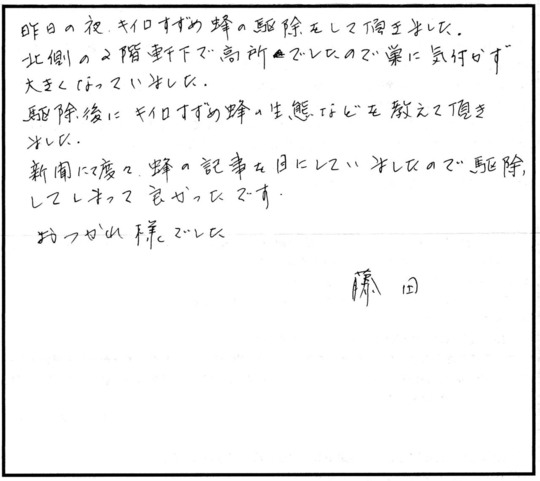 昨日の夜、キイロすずめ蜂の駆除をして頂きました。
北側の2階軒下で高所でしたので巣に気付かず
大きくなっていました。
駆除後にキイロすずめ蜂の生態などを教えて頂き
ました。
新聞にて度々、蜂の記事を目にしていましたので駆除
してしまって良かったです。
おつかれ様でした
藤田